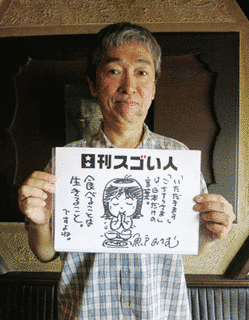 日刊スゴい人
「いただきます」
「ごちそうさま」
は、日本だけの
言葉。
食べることは
生きること。
ですよね。
魚戸おさむ